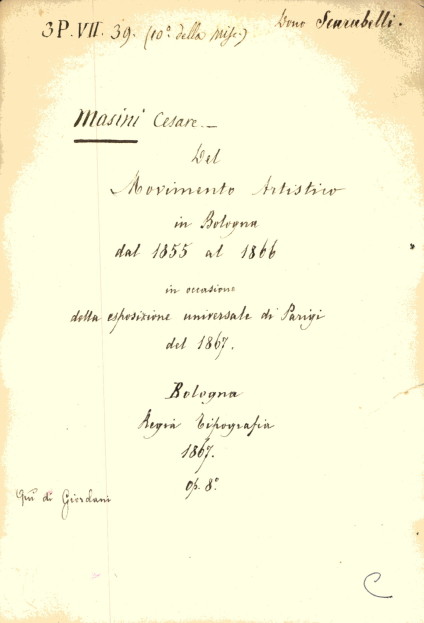 3P. VII. 39. (10ª della Misc.) Dono Scarabelli.
Masini Cesare. —
Del
Movimento Artistico
in Bologna
dal 1855 al 1866
in occasione
della esposizione universale di Parigi
del 1867.
Bologna
Regia Tipografia
1867.
op. 8º
di Giordani
C